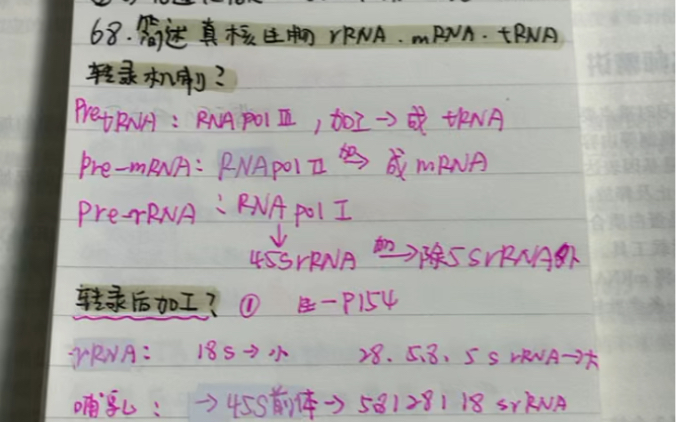 68.简述真核生物 rRNA.mRNA.tRNA
转录机制?
Pre-tRNA: RNA pol III,加工→成 tRNA
Pre-mRNA: RNA pol II 加→ 成 mRNA
Pre-rRNA: RNA pol I
↓
45S rRNA 加→除5S rRNA外
转录后加工? ① 生-P154
rRNA: 18S→小 28.5.8.5S rRNA→大
哺乳: →45S前体→5.8/28/18 SrRNA